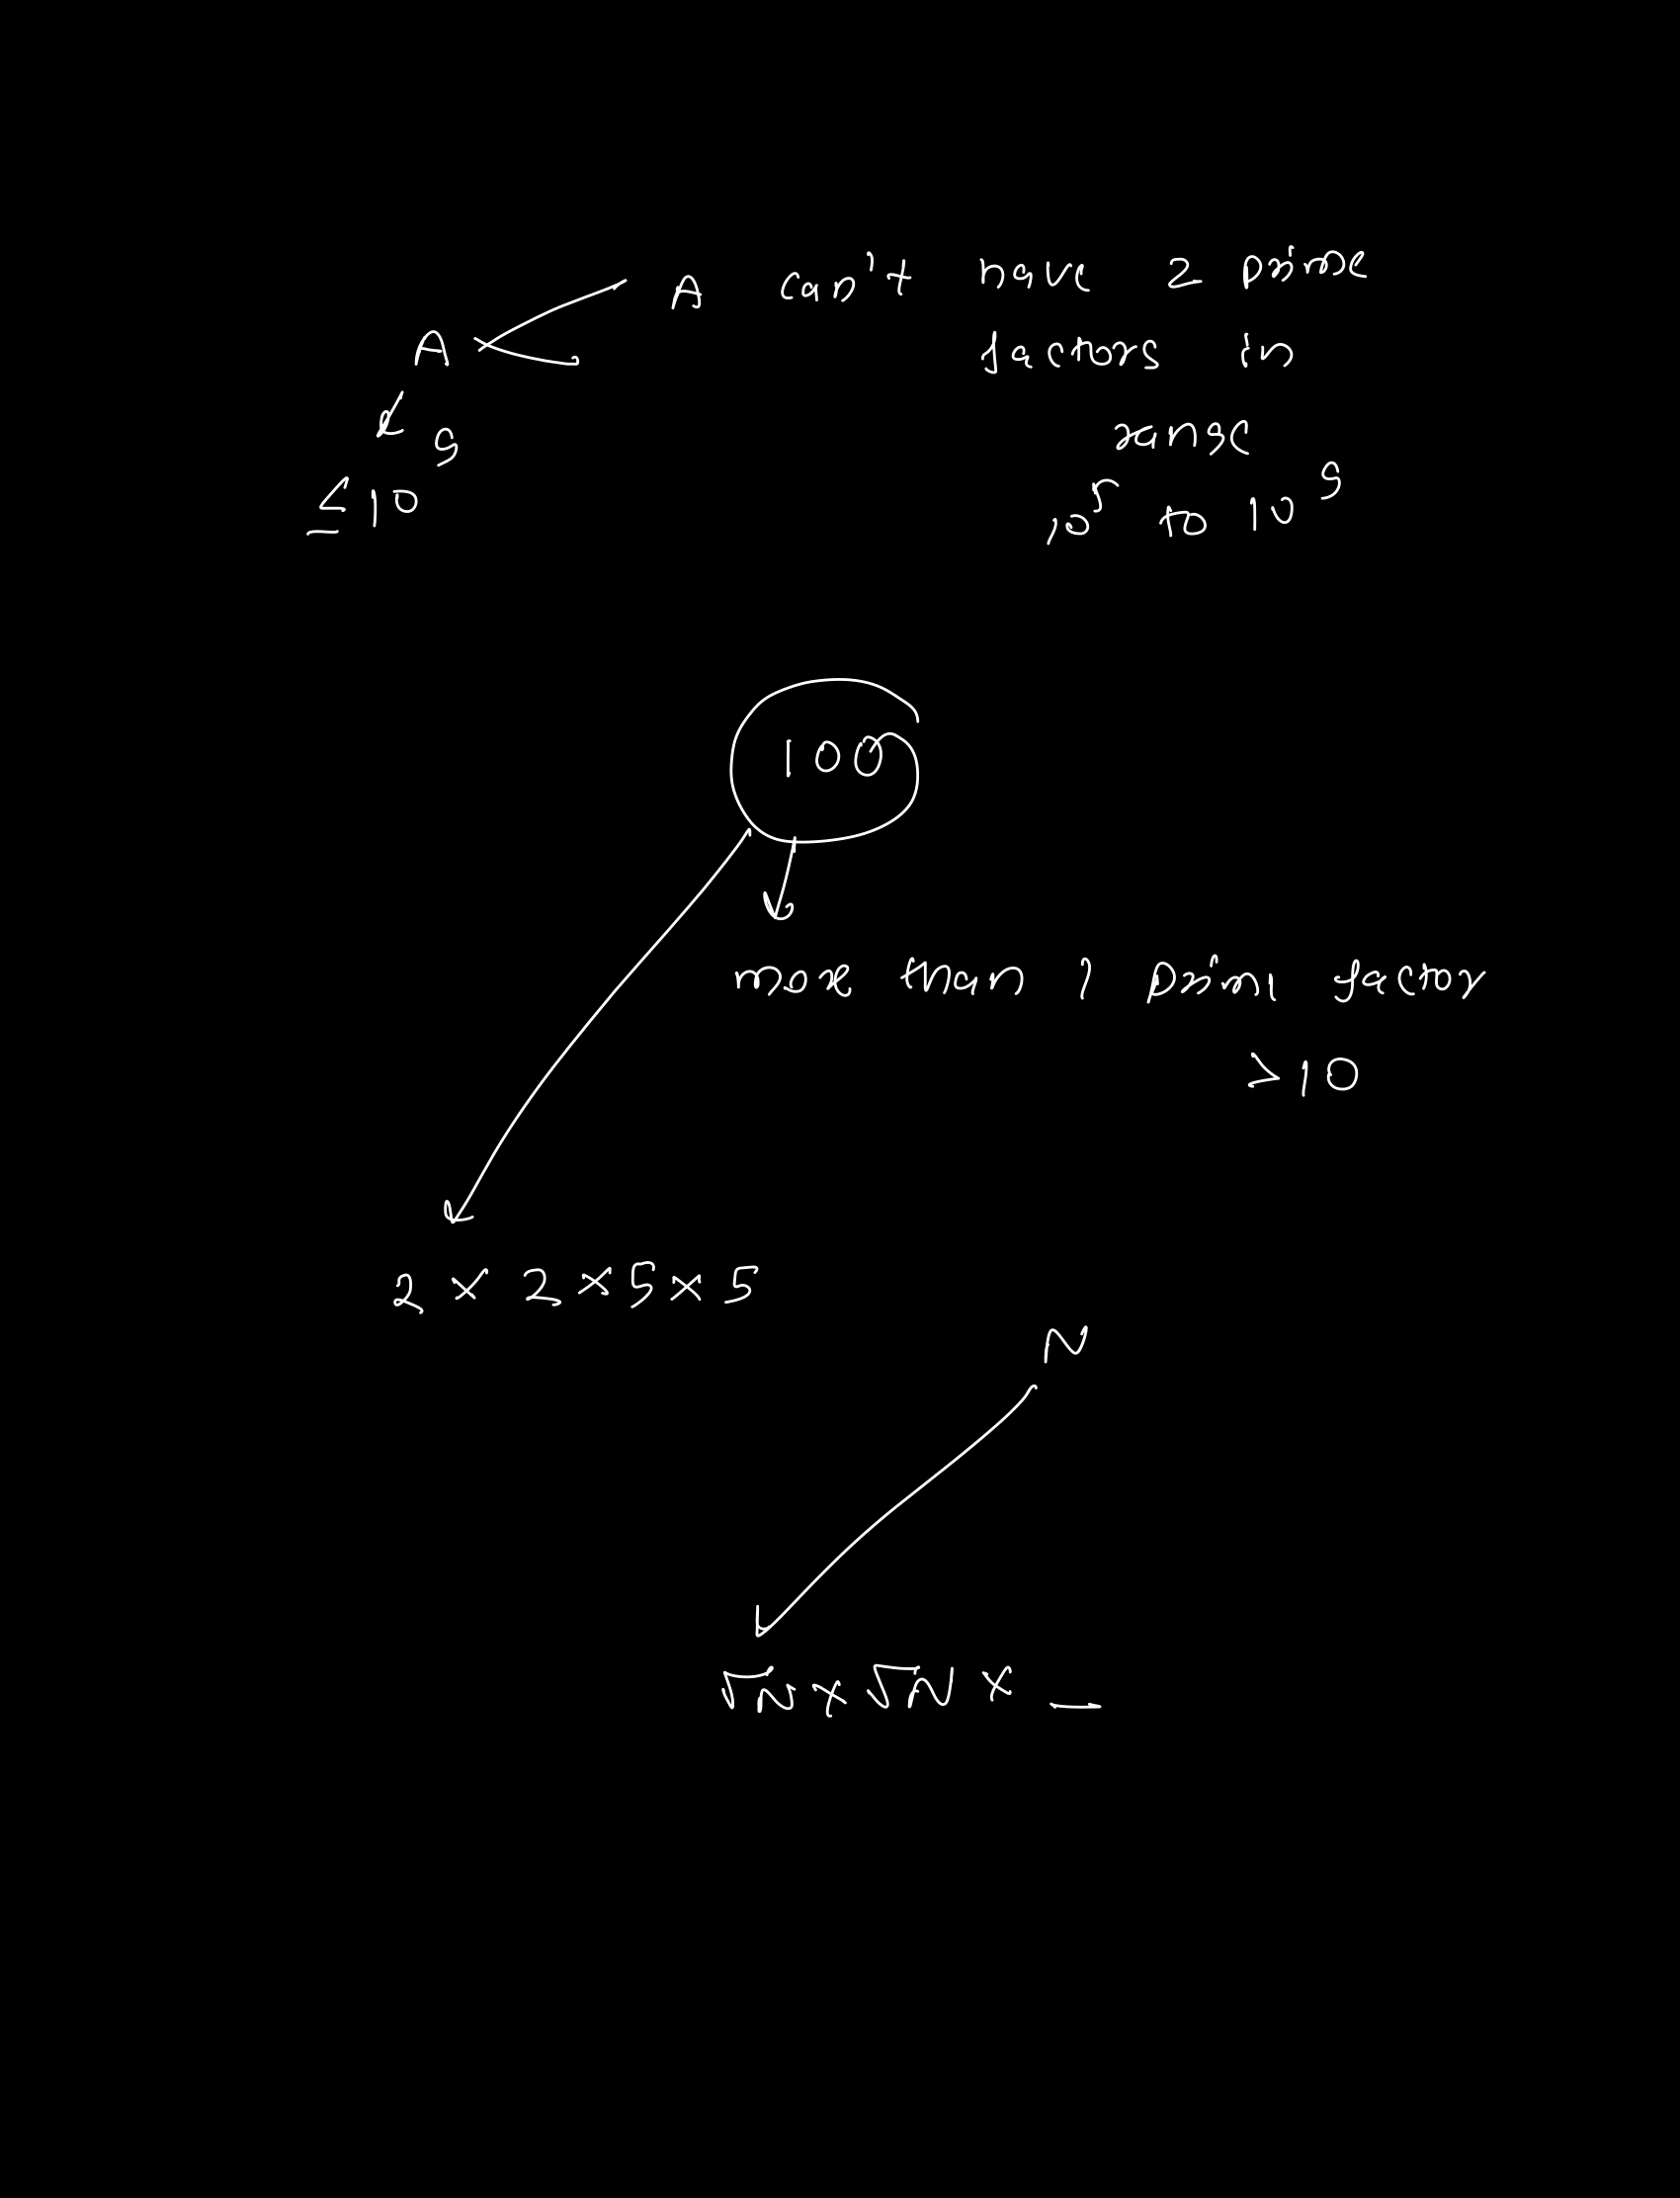 A can't have 2 prime
A
factors in
range
≤10⁹
10⁵ to 10⁹
100
more than 1 prime factor
>10
2 × 2 × 5 × 5
N
√N × √N × _